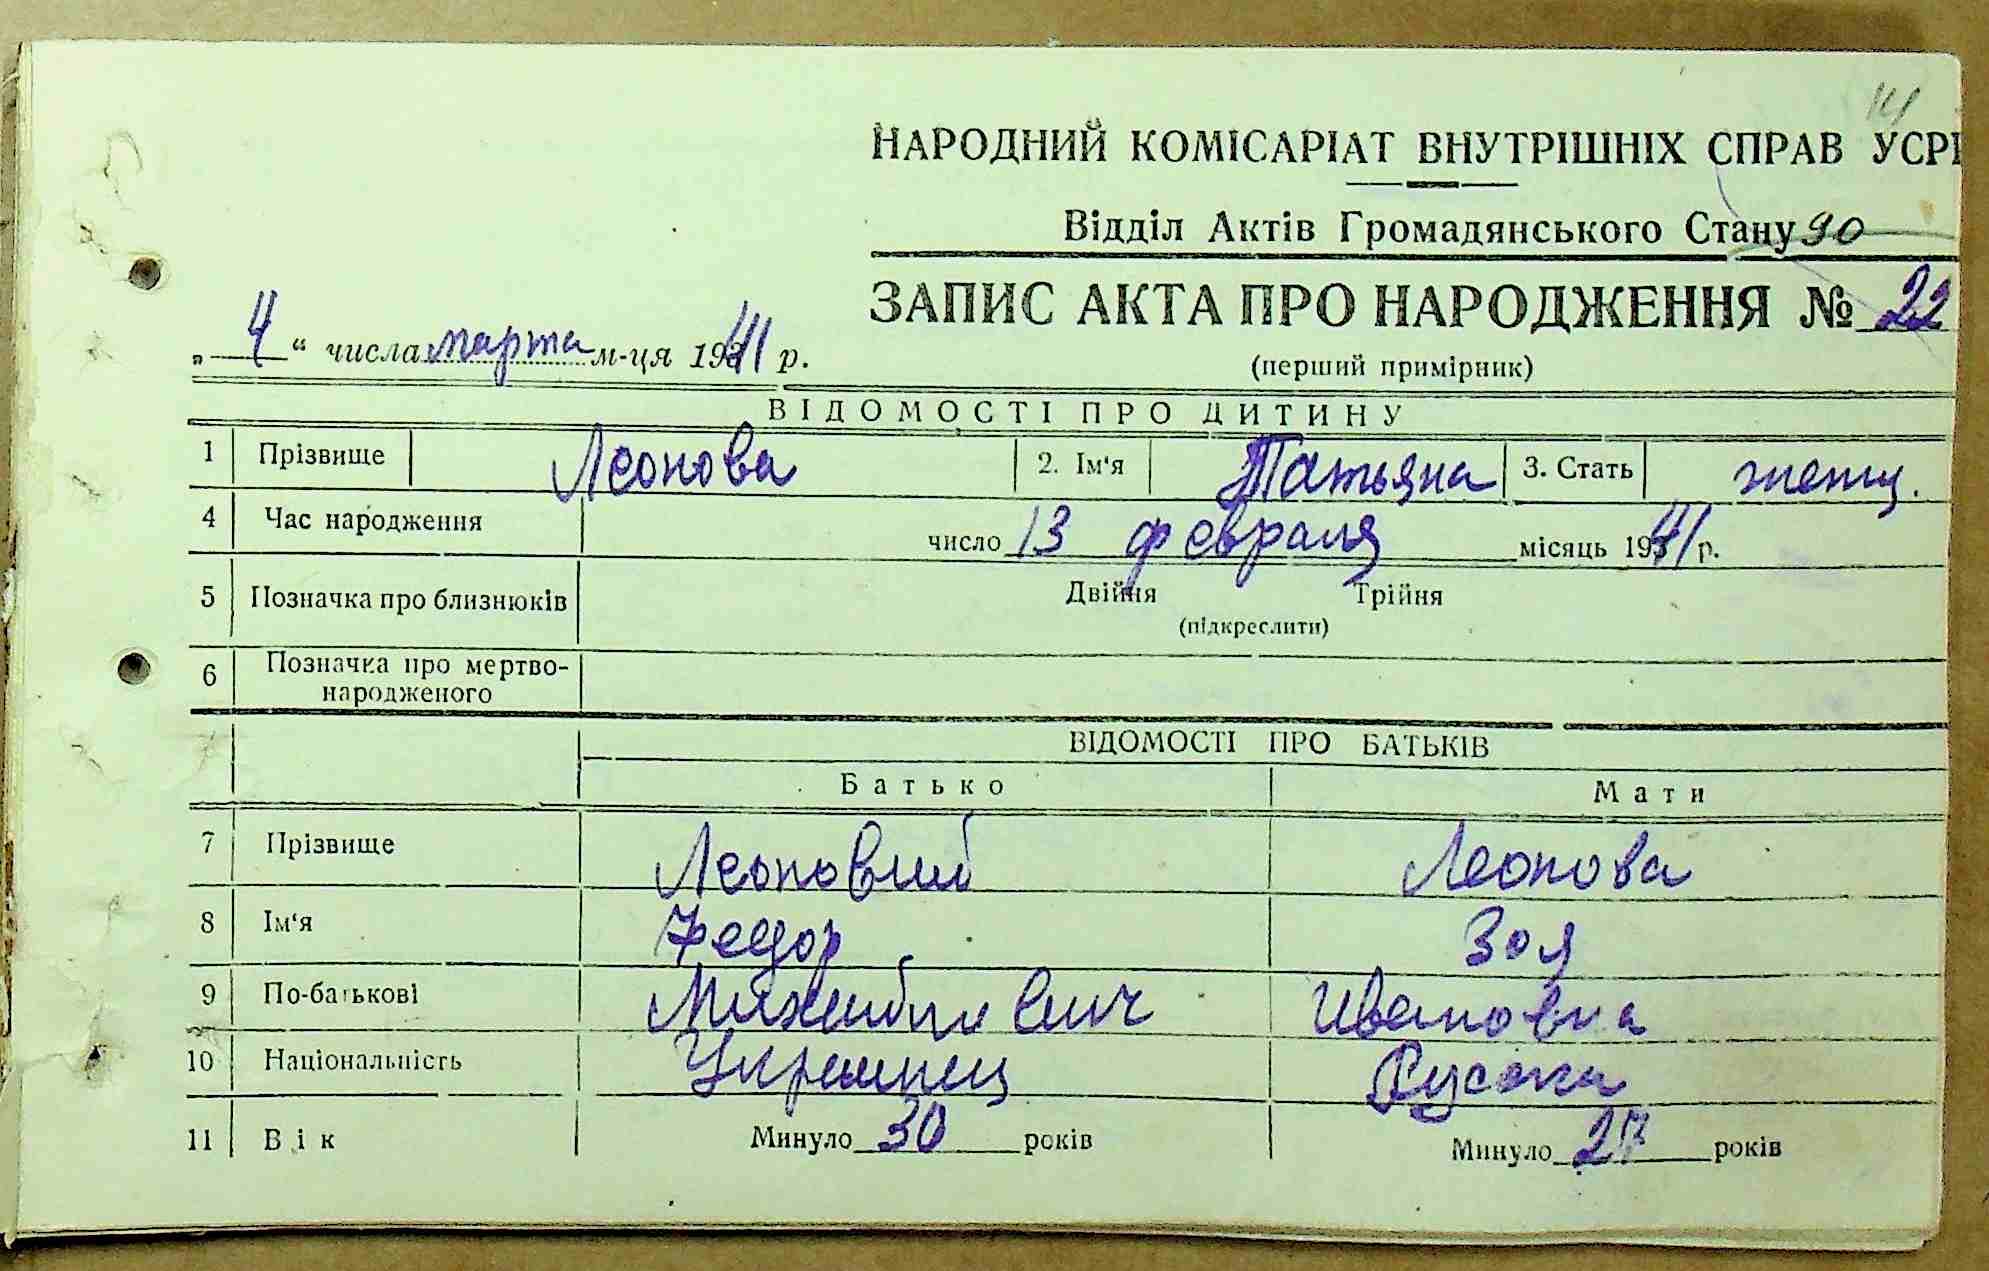 14
НАРОДНИЙ КОМІСАРІАТ ВНУТРІШНІХ СПРАВ УСРР
Відділ Актів Громадянського Стану 90
ЗАПИС АКТА ПРО НАРОДЖЕННЯ № 22
„ 4 “ числа марта м-ця 1941 р.
(перший примірник)
ВІДОМОСТІ ПРО ДИТИНУ
1 Прізвище Леонова 2. Ім‘я Татьяна 3. Стать женщ.
4 Час народження число 13 февраля місяць 1941 р.
5 Позначка про близнюків Двійня Трійня
(підкреслити)
6 Позначка про мертво-
народженого
ВІДОМОСТІ ПРО БАТЬКІВ
Батько Мати
7 Прізвище Леоновий Леонова
8 Ім‘я Федор Зоя
9 По-батькові Ивановна
10 Національність Украинец Русска
11 Вік Минуло 30 років Минуло 27 років